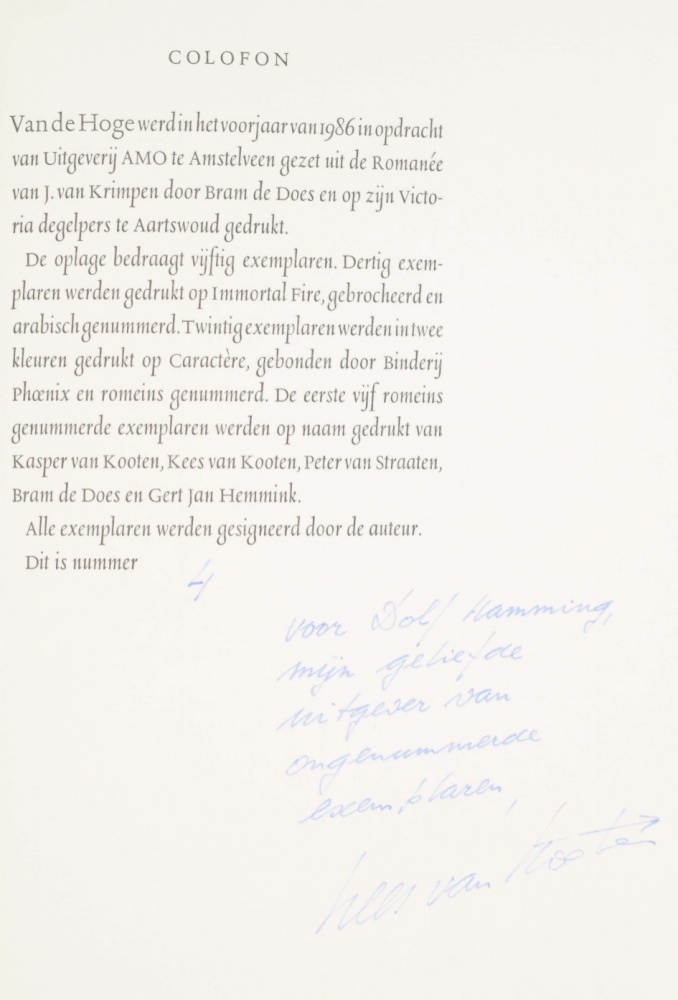 COLOFON
Van de Hoge werd in het voorjaar van 1986 in opdracht
van Uitgeverij AMO te Amstelveen gezet uit de Romanée
van J. van Krimpen door Bram de Does en op zijn Victo-
ria degelpers te Aartswoud gedrukt.
De oplage bedraagt vijftig exemplaren. Dertig exem-
plaren werden gedrukt op Immortal Fire, gebrocheerd en
arabisch genummerd. Twintig exemplaren werden in twee
kleuren gedrukt op Caractère, gebonden door Binderij
Phœnix en romeins genummerd. De eerste vijf romeins
genummerde exemplaren werden op naam gedrukt van
Kasper van Kooten, Kees van Kooten, Peter van Straaten,
Bram de Does en Gert Jan Hemmink.
Alle exemplaren werden gesigneerd door de auteur.
Dit is nummer 4
voor Dolf Hamming,
mijn geliefde
uitgever van
ongenummerde
exemplaren,
Kees van Kooten